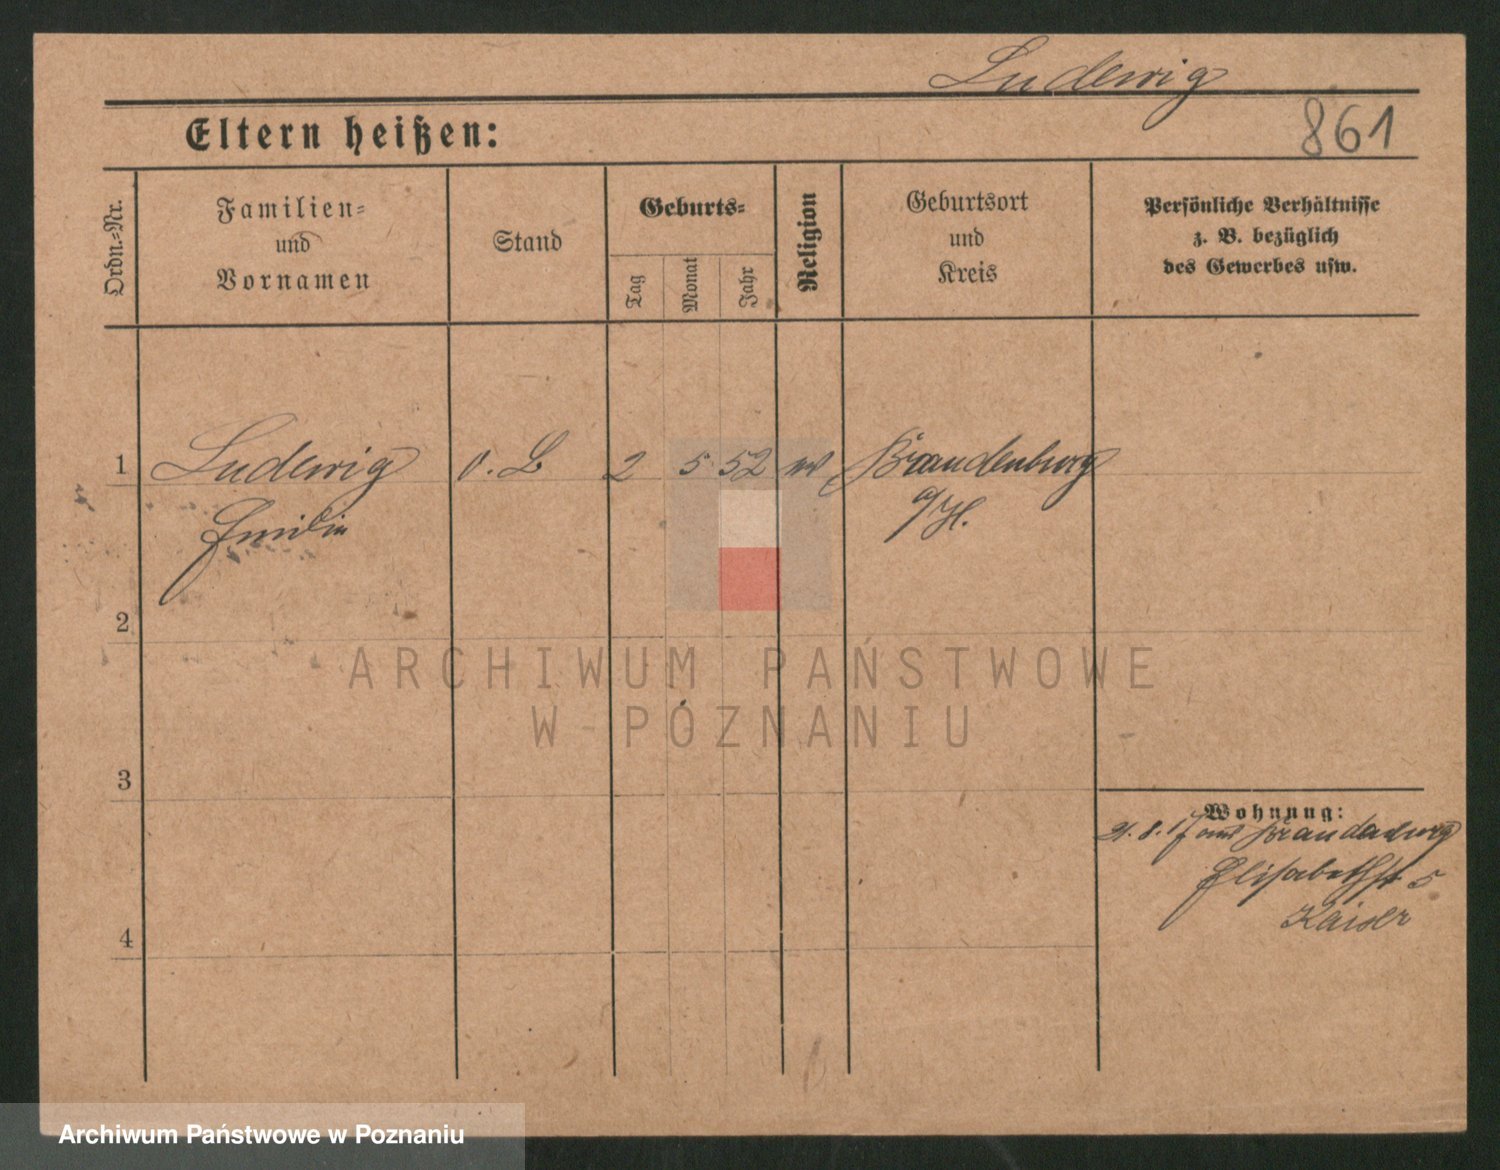 Ludewig
861
Eltern heißen:
Ordn.-Nr.
Familien-
und
Vornamen
Stand
Geburts-
Tag
Monat
Jahr
Religion
Geburtsort
und
Kreis
Persönliche Verhältnisse
z. B. bezüglich
des Gewerbes usw.
1 Ludewig o. B 2 5 52 ev Brandenburg
Emilie a/H.
2
ARCHIWUM PAŃSTWOWE
W POZNANIU
3
Wohnung:
21.8.17 aus Brandenburg
Elisabethst 5
Kaiser
4
Archiwum Państwowe w Poznaniu